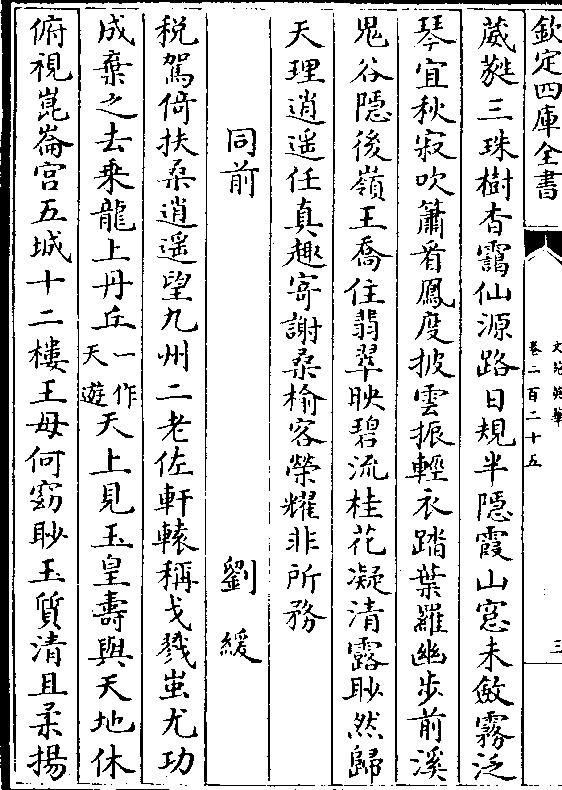 欽定四庫全書
文苑英華
卷二百二十五
三
葳蕤三珠樹杳靄仙源路日規半隠霞山窓未斂霧泛
琴宜秋寂吹簫看鳳度披雲振輕衣踏葉羅幽步前溪
鬼谷隠後嶺王喬住翡翠映碧流桂花凝清露眇然歸
天理逍遥任真趣寄謝桑榆客榮耀非所務
同前 劉緩
税駕倚扶桑逍遥望九州二老佐軒轅稱戈戮蚩尤功
成棄之去乘龍上丹丘一作天遊天上見玉皇壽與天地休
俯視崑崙宫五城十二樓王母何窈眇玉質清且柔揚